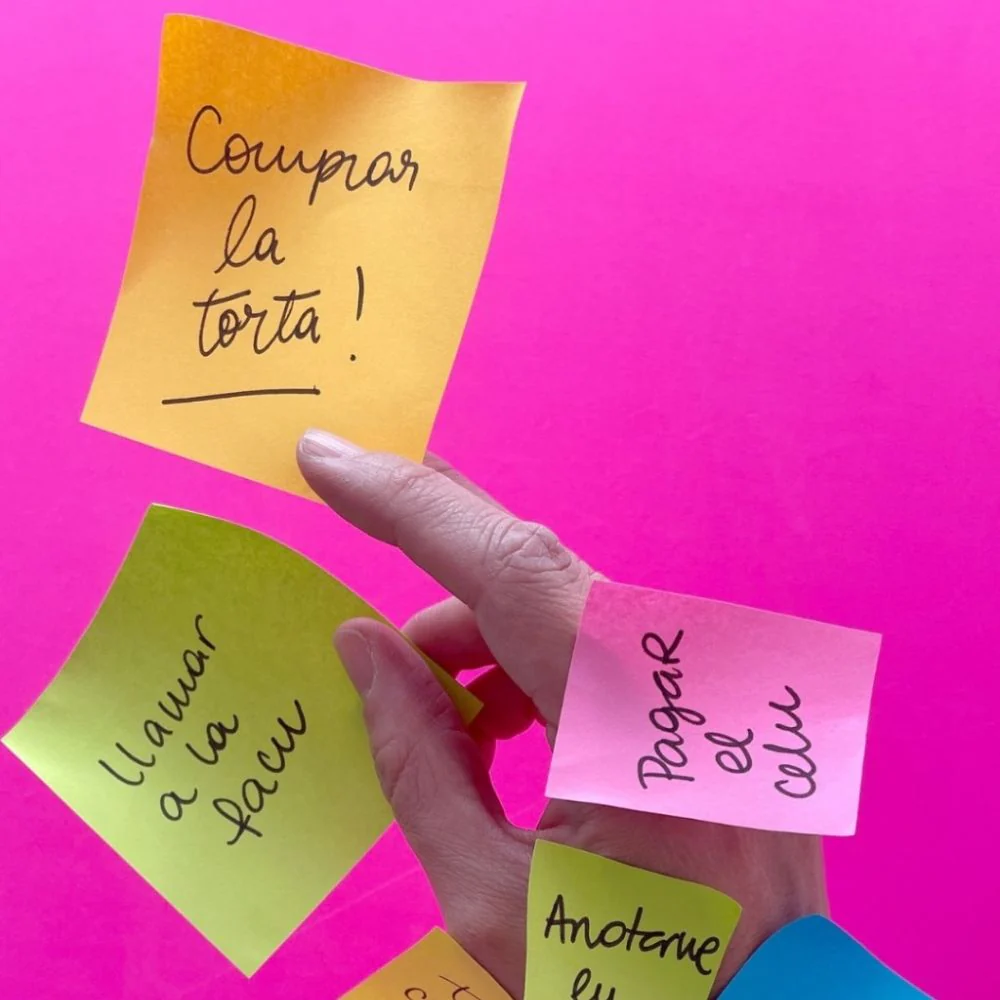 Comprar
la
torta!
Llamar
a la
facu
Pagar
el
celu
Anotarme
en